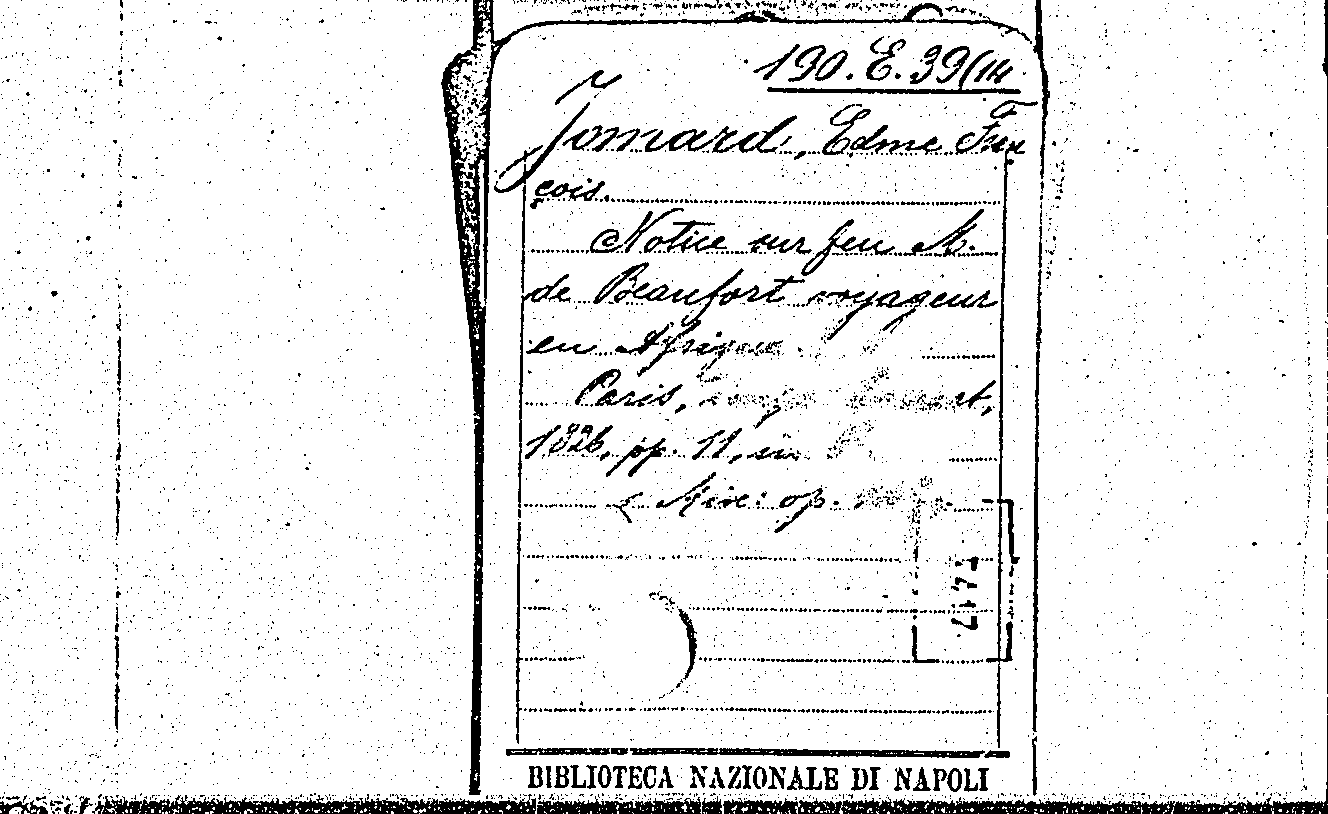 190.E.39(14
Jomard, Edme Fran
çois.
Notice sur feu M.
de Beaufort voyageur
en Afrique.
Paris,
1826, pp. 11, in
( Mix: op.
BIBLIOTECA NAZIONALE DI NAPOLI